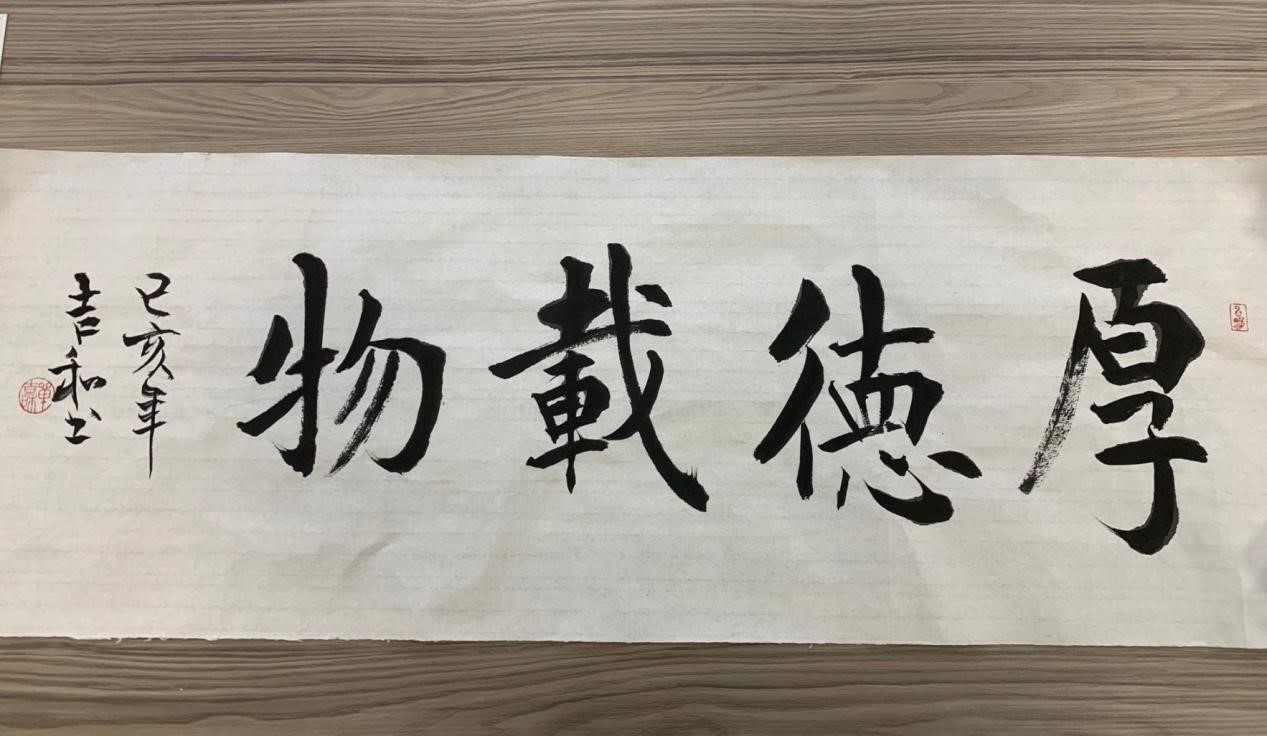 厚德載物
己亥年
吉和书